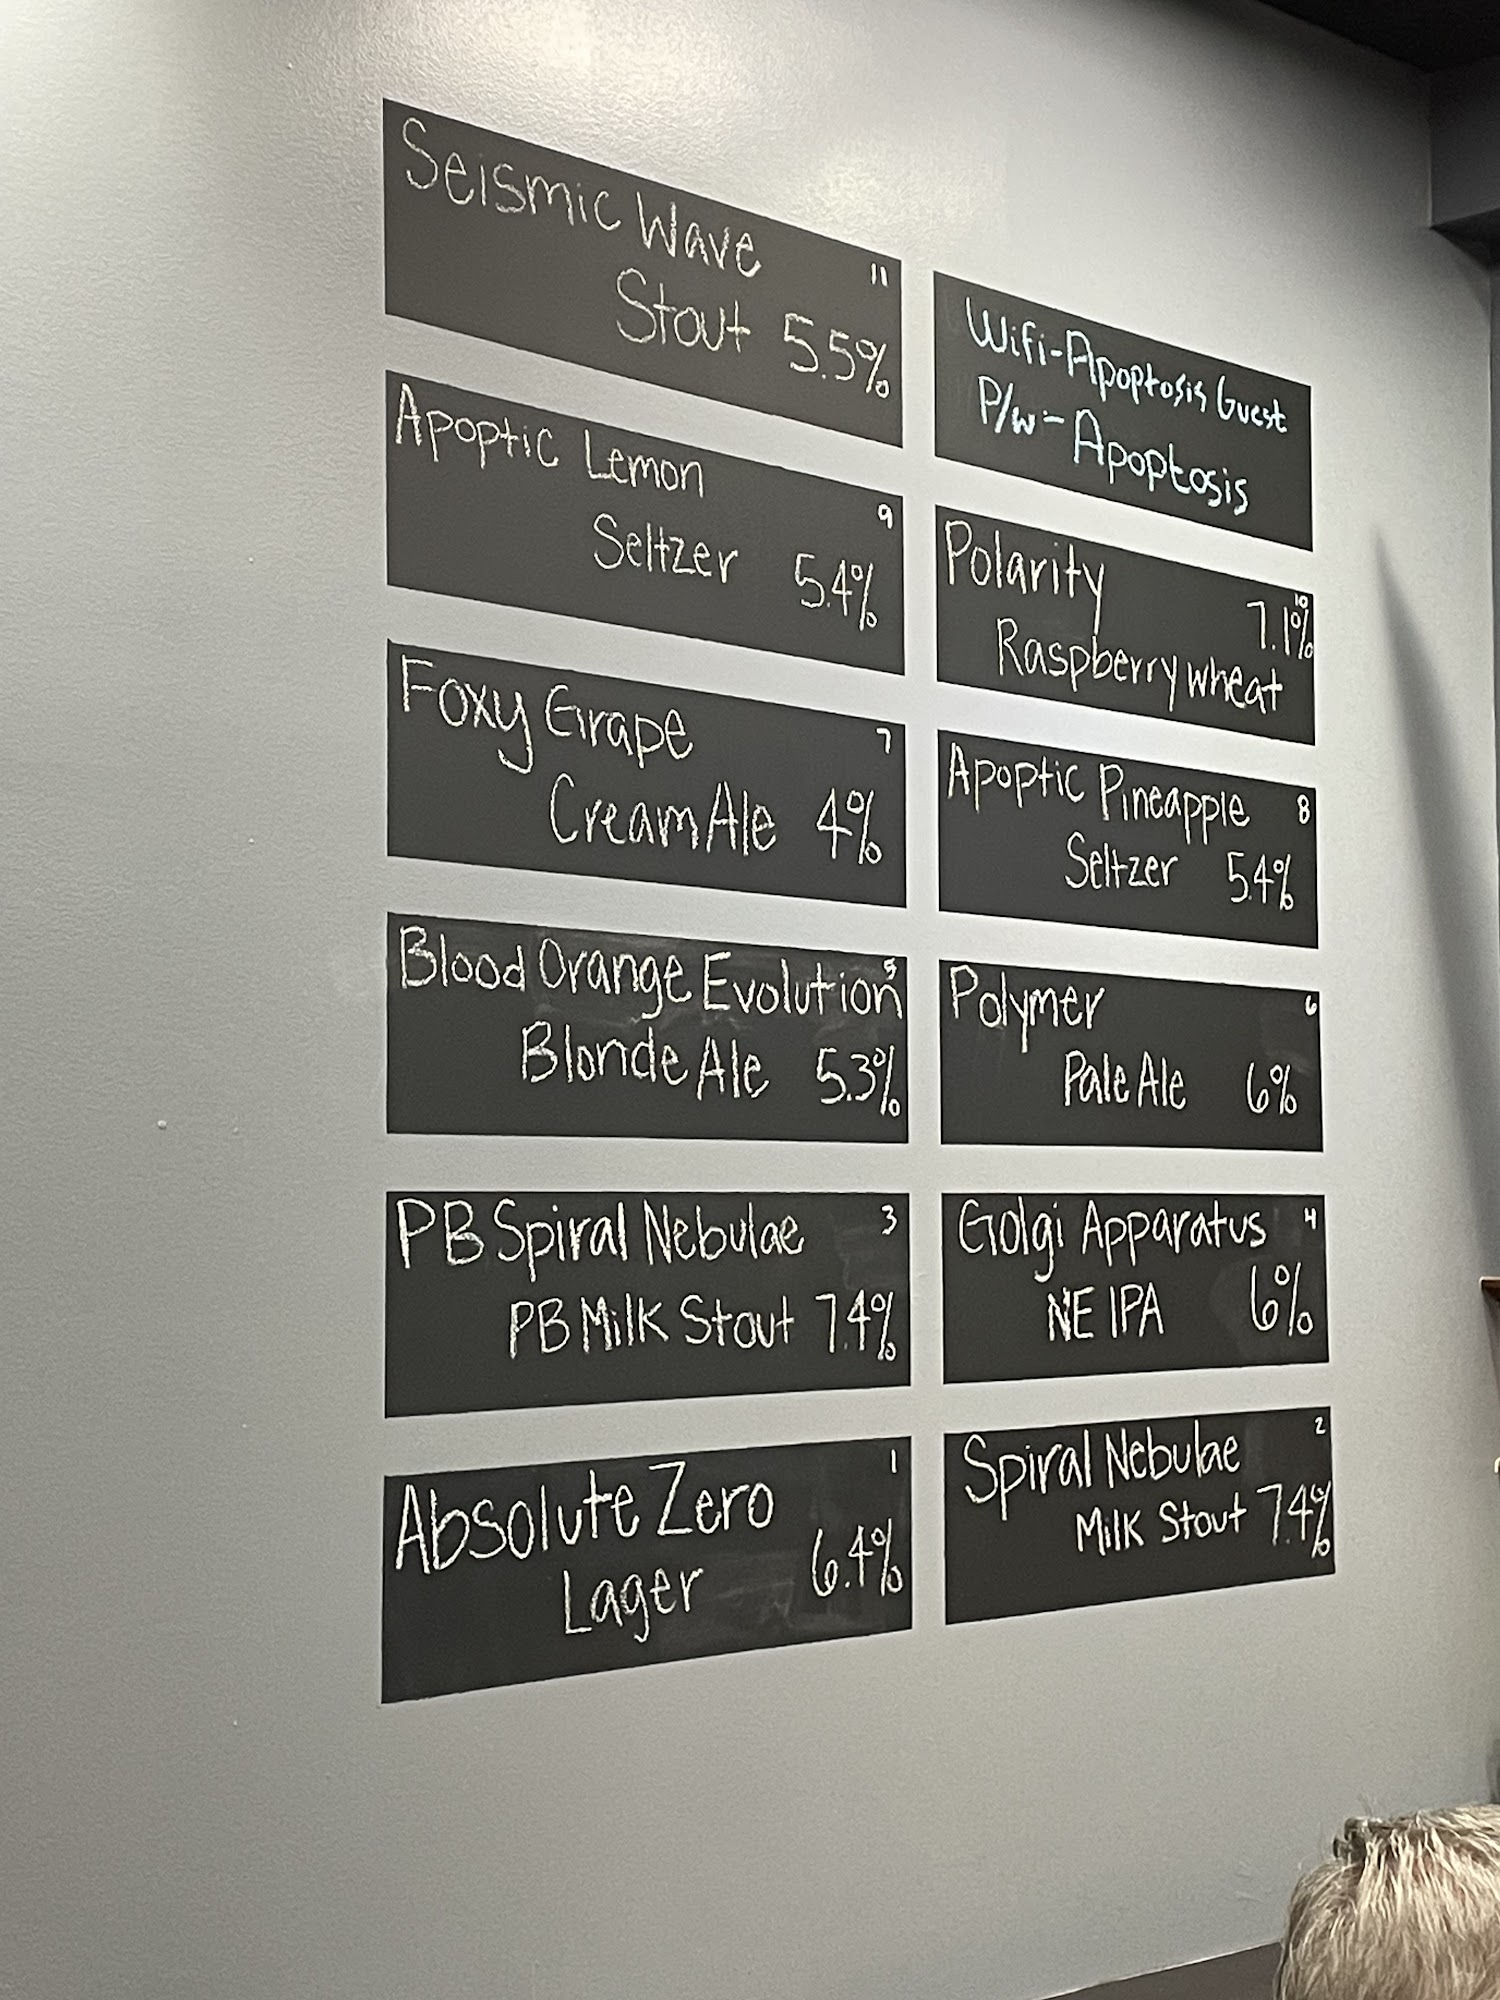 Seismic Wave
11
Stout 5.5%
Wifi-Apoptosis Guest
P/w- Apoptosis
Apoptic Lemon
9
Seltzer 5.4%
Polarity
10
7.1%
Raspberry wheat
Foxy Grape
7
Cream Ale 4%
Apoptic Pineapple
8
Seltzer 5.4%
Blood Orange Evolution
5
Blonde Ale 5.3%
Polymer
6
Pale Ale 6%
PB Spiral Nebulae
3
PB Milk Stout 7.4%
Golgi Apparatus
4
NE IPA 6%
Absolute Zero
1
Lager 6.4%
Spiral Nebulae
2
Milk Stout 7.4%